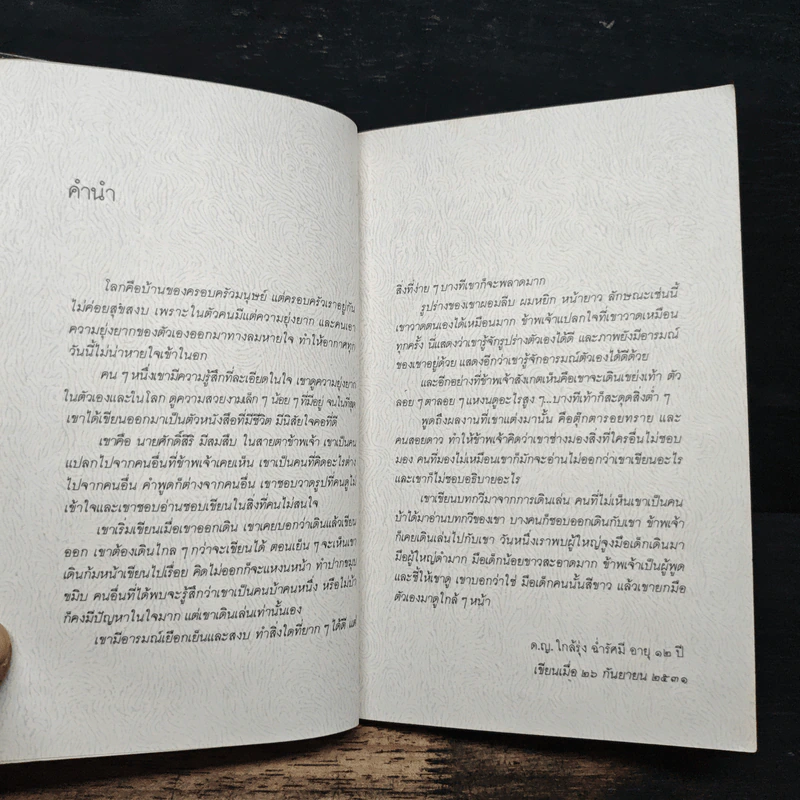 คำนำ
โลกคือบ้านของครอบครัวมนุษย์ แต่ครอบครัวเราอยู่กัน
ไม่ค่อยสุขสงบ เพราะในตัวคนมีแต่ความยุ่งยาก และคนเอา
ความยุ่งยากของตัวเองออกมาทางลมหายใจ ทำให้อากาศทุก
วันนี้ไม่น่าหายใจเข้าในอก
คน ๆ หนึ่งเขามีความรู้สึกที่ละเอียดในใจ เขาดูความยุ่งยาก
ในตัวเองและในโลก ดูความสวยงามเล็ก ๆ น้อย ๆ ที่มีอยู่ จนในที่สุด
เขาได้เขียนออกมาเป็นตัวหนังสือที่มีชีวิต มีนิสัยใจคอที่ดี
เขาคือ นายศักดิ์สิริ มีสมสืบ ในสายตาข้าพเจ้า เขาเป็นคน
แปลกไปจากคนอื่นที่ข้าพเจ้าเคยเห็น เขาเป็นคนที่คิดอะไรต่าง
ไปจากคนอื่น คำพูดก็ต่างจากคนอื่น เขาชอบวาดรูปที่คนดูไม่
เข้าใจและเขาชอบอ่านชอบเขียนในสิ่งที่คนไม่สนใจ
เขาเริ่มเขียนเมื่อเขาออกเดิน เขาเคยบอกว่าเดินแล้วเขียน
ออก เขาต้องเดินไกล ๆ กว่าจะเขียนได้ ตอนเย็น ๆ จะเห็นเขา
เดินก้มหน้าเขียนไปเรื่อย คิดไม่ออกก็จะแหงนหน้า ทำปากขมุบ
ขมิบ คนอื่นที่ได้พบจะรู้สึกว่าเขาเป็นคนบ้าคนหนึ่ง หรือไม่บ้า
ก็คงมีปัญหาในใจมาก แต่เขาเดินเล่นเท่านั้นเอง
เขามีอารมณ์เยือกเย็นและสงบ ทำสิ่งใดที่ยาก ๆ ได้ดี แต่
สิ่งที่ง่าย ๆ บางทีเขาก็จะพลาดมาก
รูปร่างของเขาผอมลีบ ผมหยิก หน้ายาว ลักษณะเช่นนี้
เขาวาดตนเองได้เหมือนมาก ข้าพเจ้าแปลกใจที่เขาวาดเหมือน
ทุกครั้ง นี่แสดงว่าเขารู้จักรูปร่างตัวเองได้ดี และภาพยังมีอารมณ์
ของเขาอยู่ด้วย แสดงอีกว่าเขารู้จักอารมณ์ตัวเองได้ดีด้วย
และอีกอย่างที่ข้าพเจ้าสังเกตเห็นคือเขาจะเดินเขย่งเท้า ตัว
ลอย ๆ ตาลอย ๆ แหงนดูอะไรสูง ๆ...บางทีเท้าก็สะดุดสิ่งต่ำ ๆ
พูดถึงผลงานที่เขาแต่งมานั้น คือตุ๊กตารอยทราย และ
คนสอยดาว ทำให้ข้าพเจ้าคิดว่าเขาช่างมองสิ่งที่ใครอื่นไม่ชอบ
มอง คนที่มองไม่เหมือนเขาก็มักจะอ่านไม่ออกว่าเขาเขียนอะไร
และเขาก็ไม่ชอบอธิบายอะไร
เขาเขียนบทกวีมาจากการเดินเล่น คนที่ไม่เห็นเขาเป็นคน
บ้าได้มาอ่านบทกวีของเขา บางคนก็ชอบออกเดินกับเขา ข้าพเจ้า
ก็เคยเดินเล่นไปกับเขา วันหนึ่งเราพบผู้ใหญ่จูงมือเด็กเดินมา
มือผู้ใหญ่ดำมาก มือเด็กน้อยขาวสะอาดมาก ข้าพเจ้าเป็นผู้พูด
และชี้ให้เขาดู เขาบอกว่าใช่ มือเด็กคนนั้นสีขาว แล้วเขายกมือ
ตัวเองมาดูใกล้ ๆ หน้า
ด.ญ. ใกล้รุ่ง ฉ่ำรัศมี อายุ ๑๒ ปี
เขียนเมื่อ ๒๖ กันยายน ๒๕๓๑